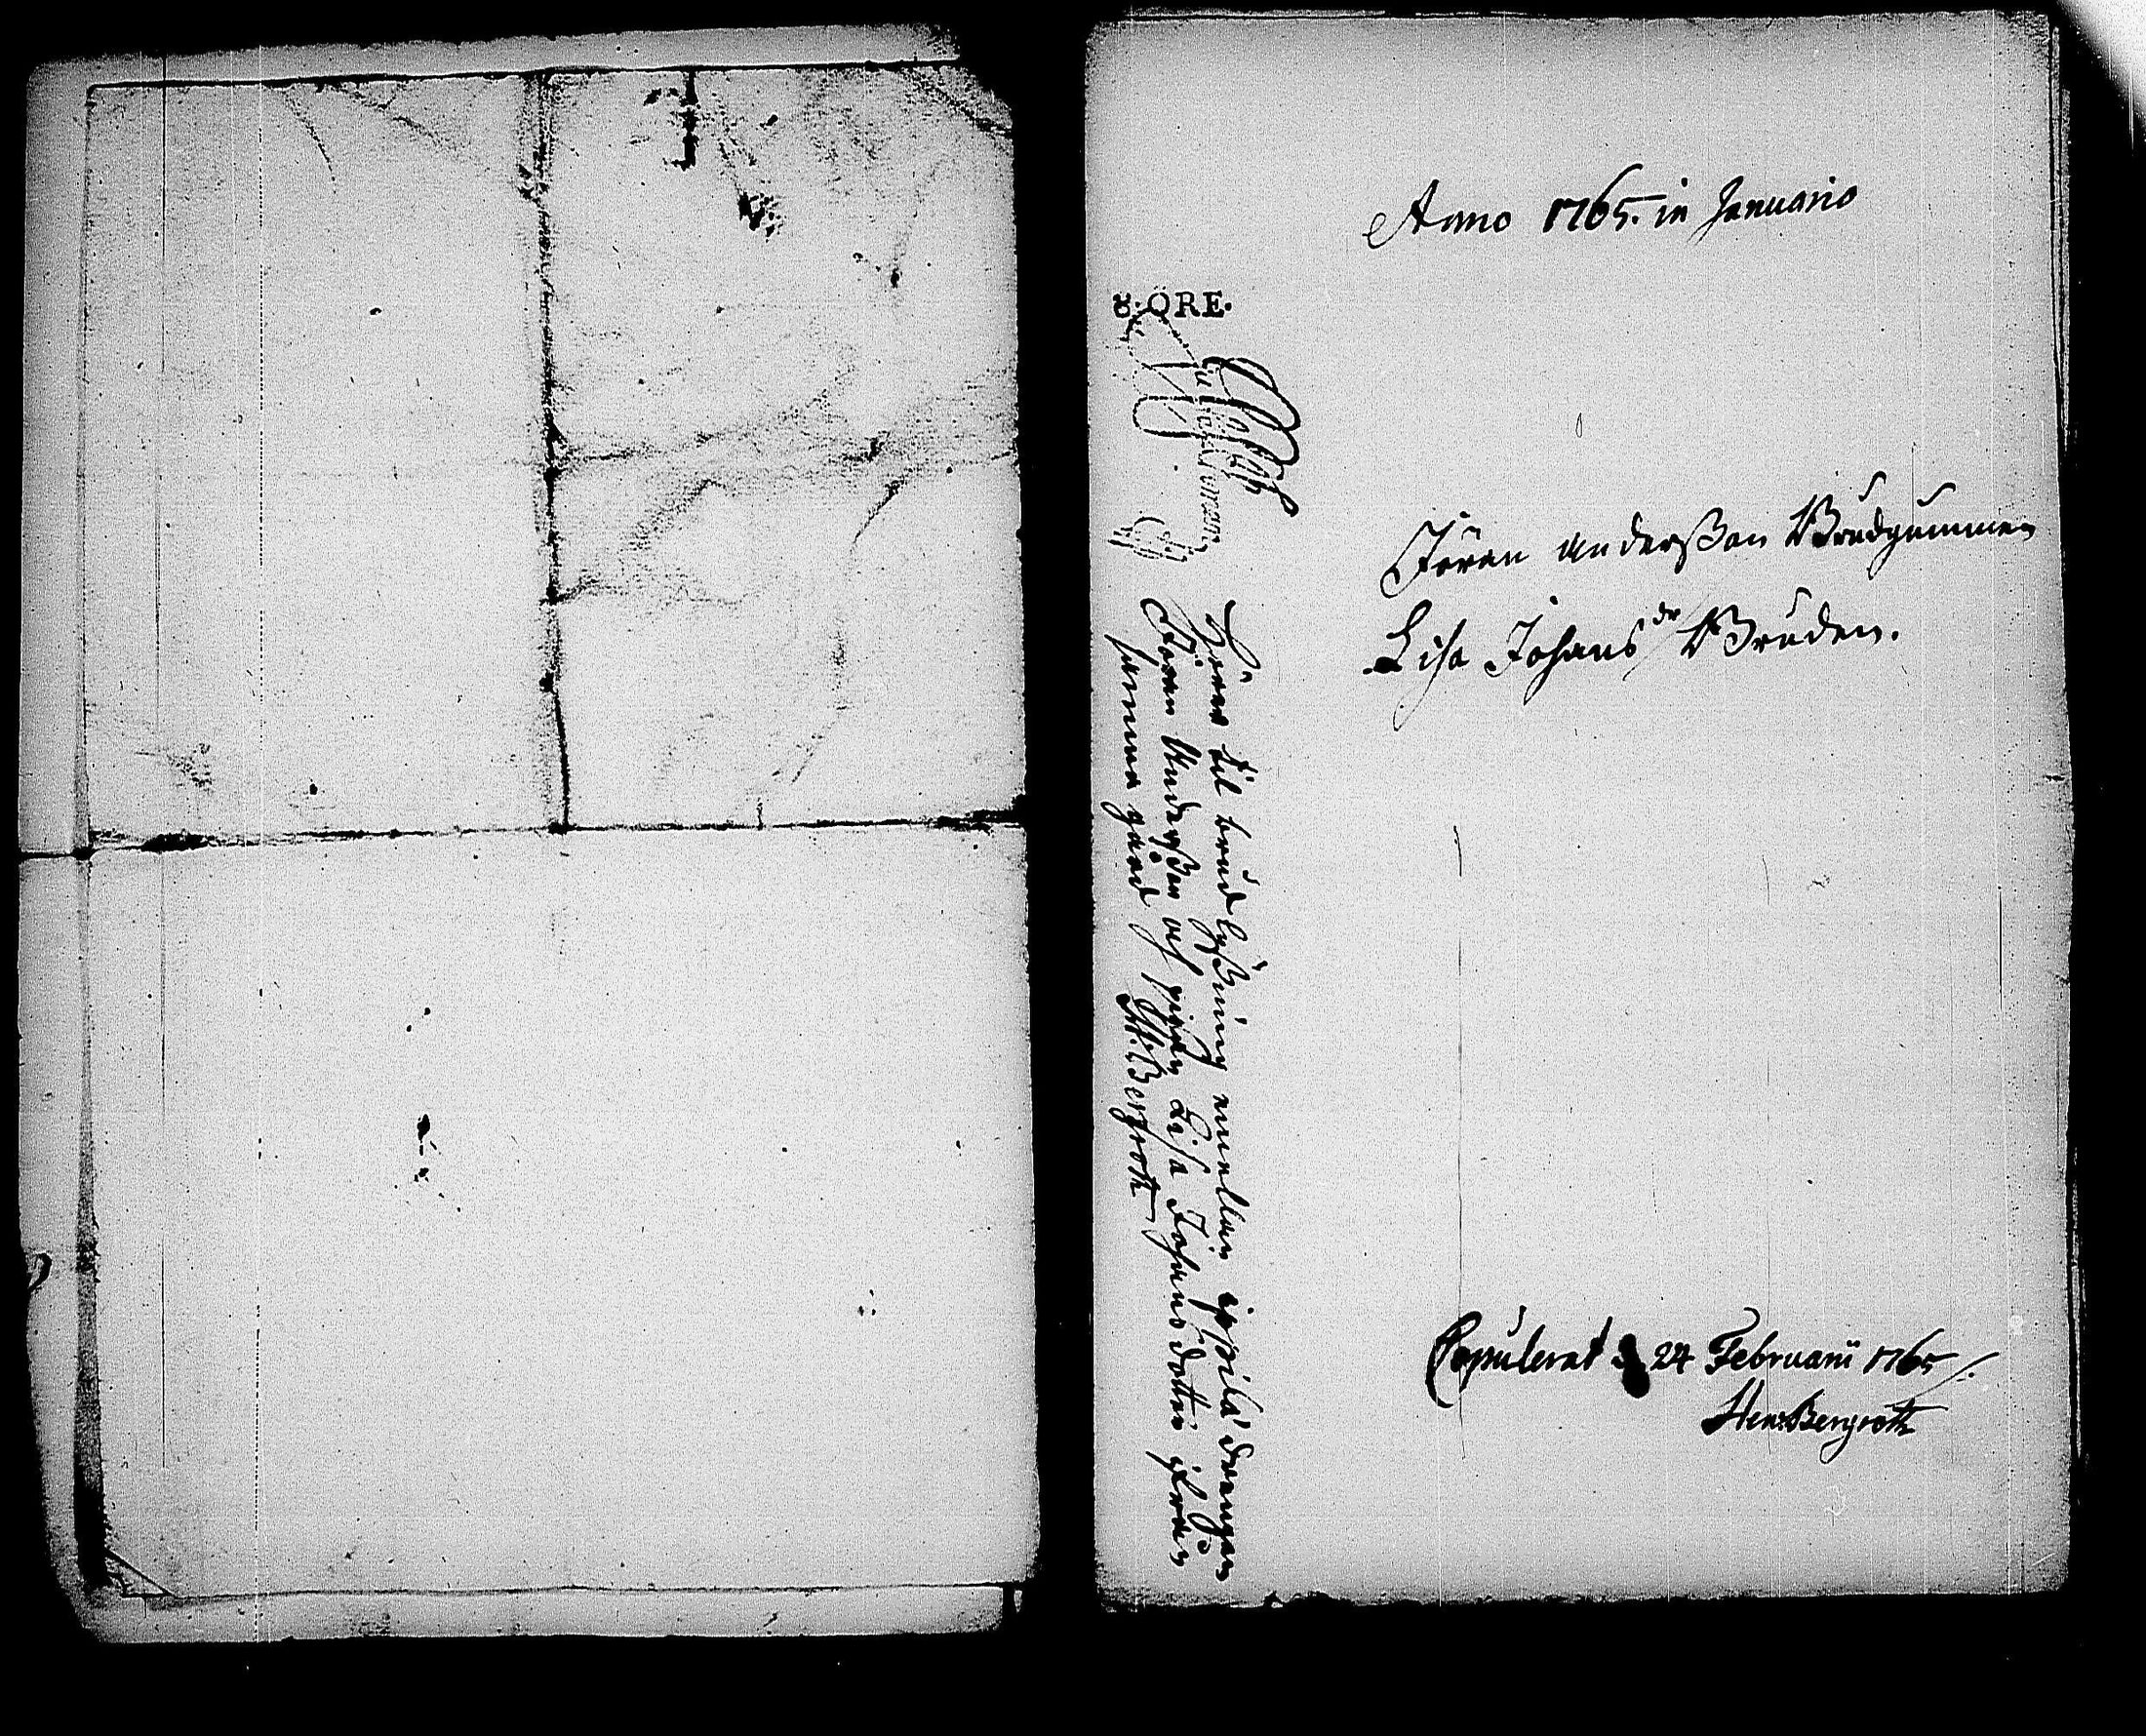 Anno 1765. in Januario
8. ÖRE.
Jöran Anderßon Brudgummen
Lisa Johans dr Bruden.
Hörer til brudlyßning emellan ippilä drengen
Jöran Anderßon och pigan Lisa Johans dotter ifrån
samma gård H. Bergroth
Copulerat d 24 Februarii 1765
Hen: Bergroth